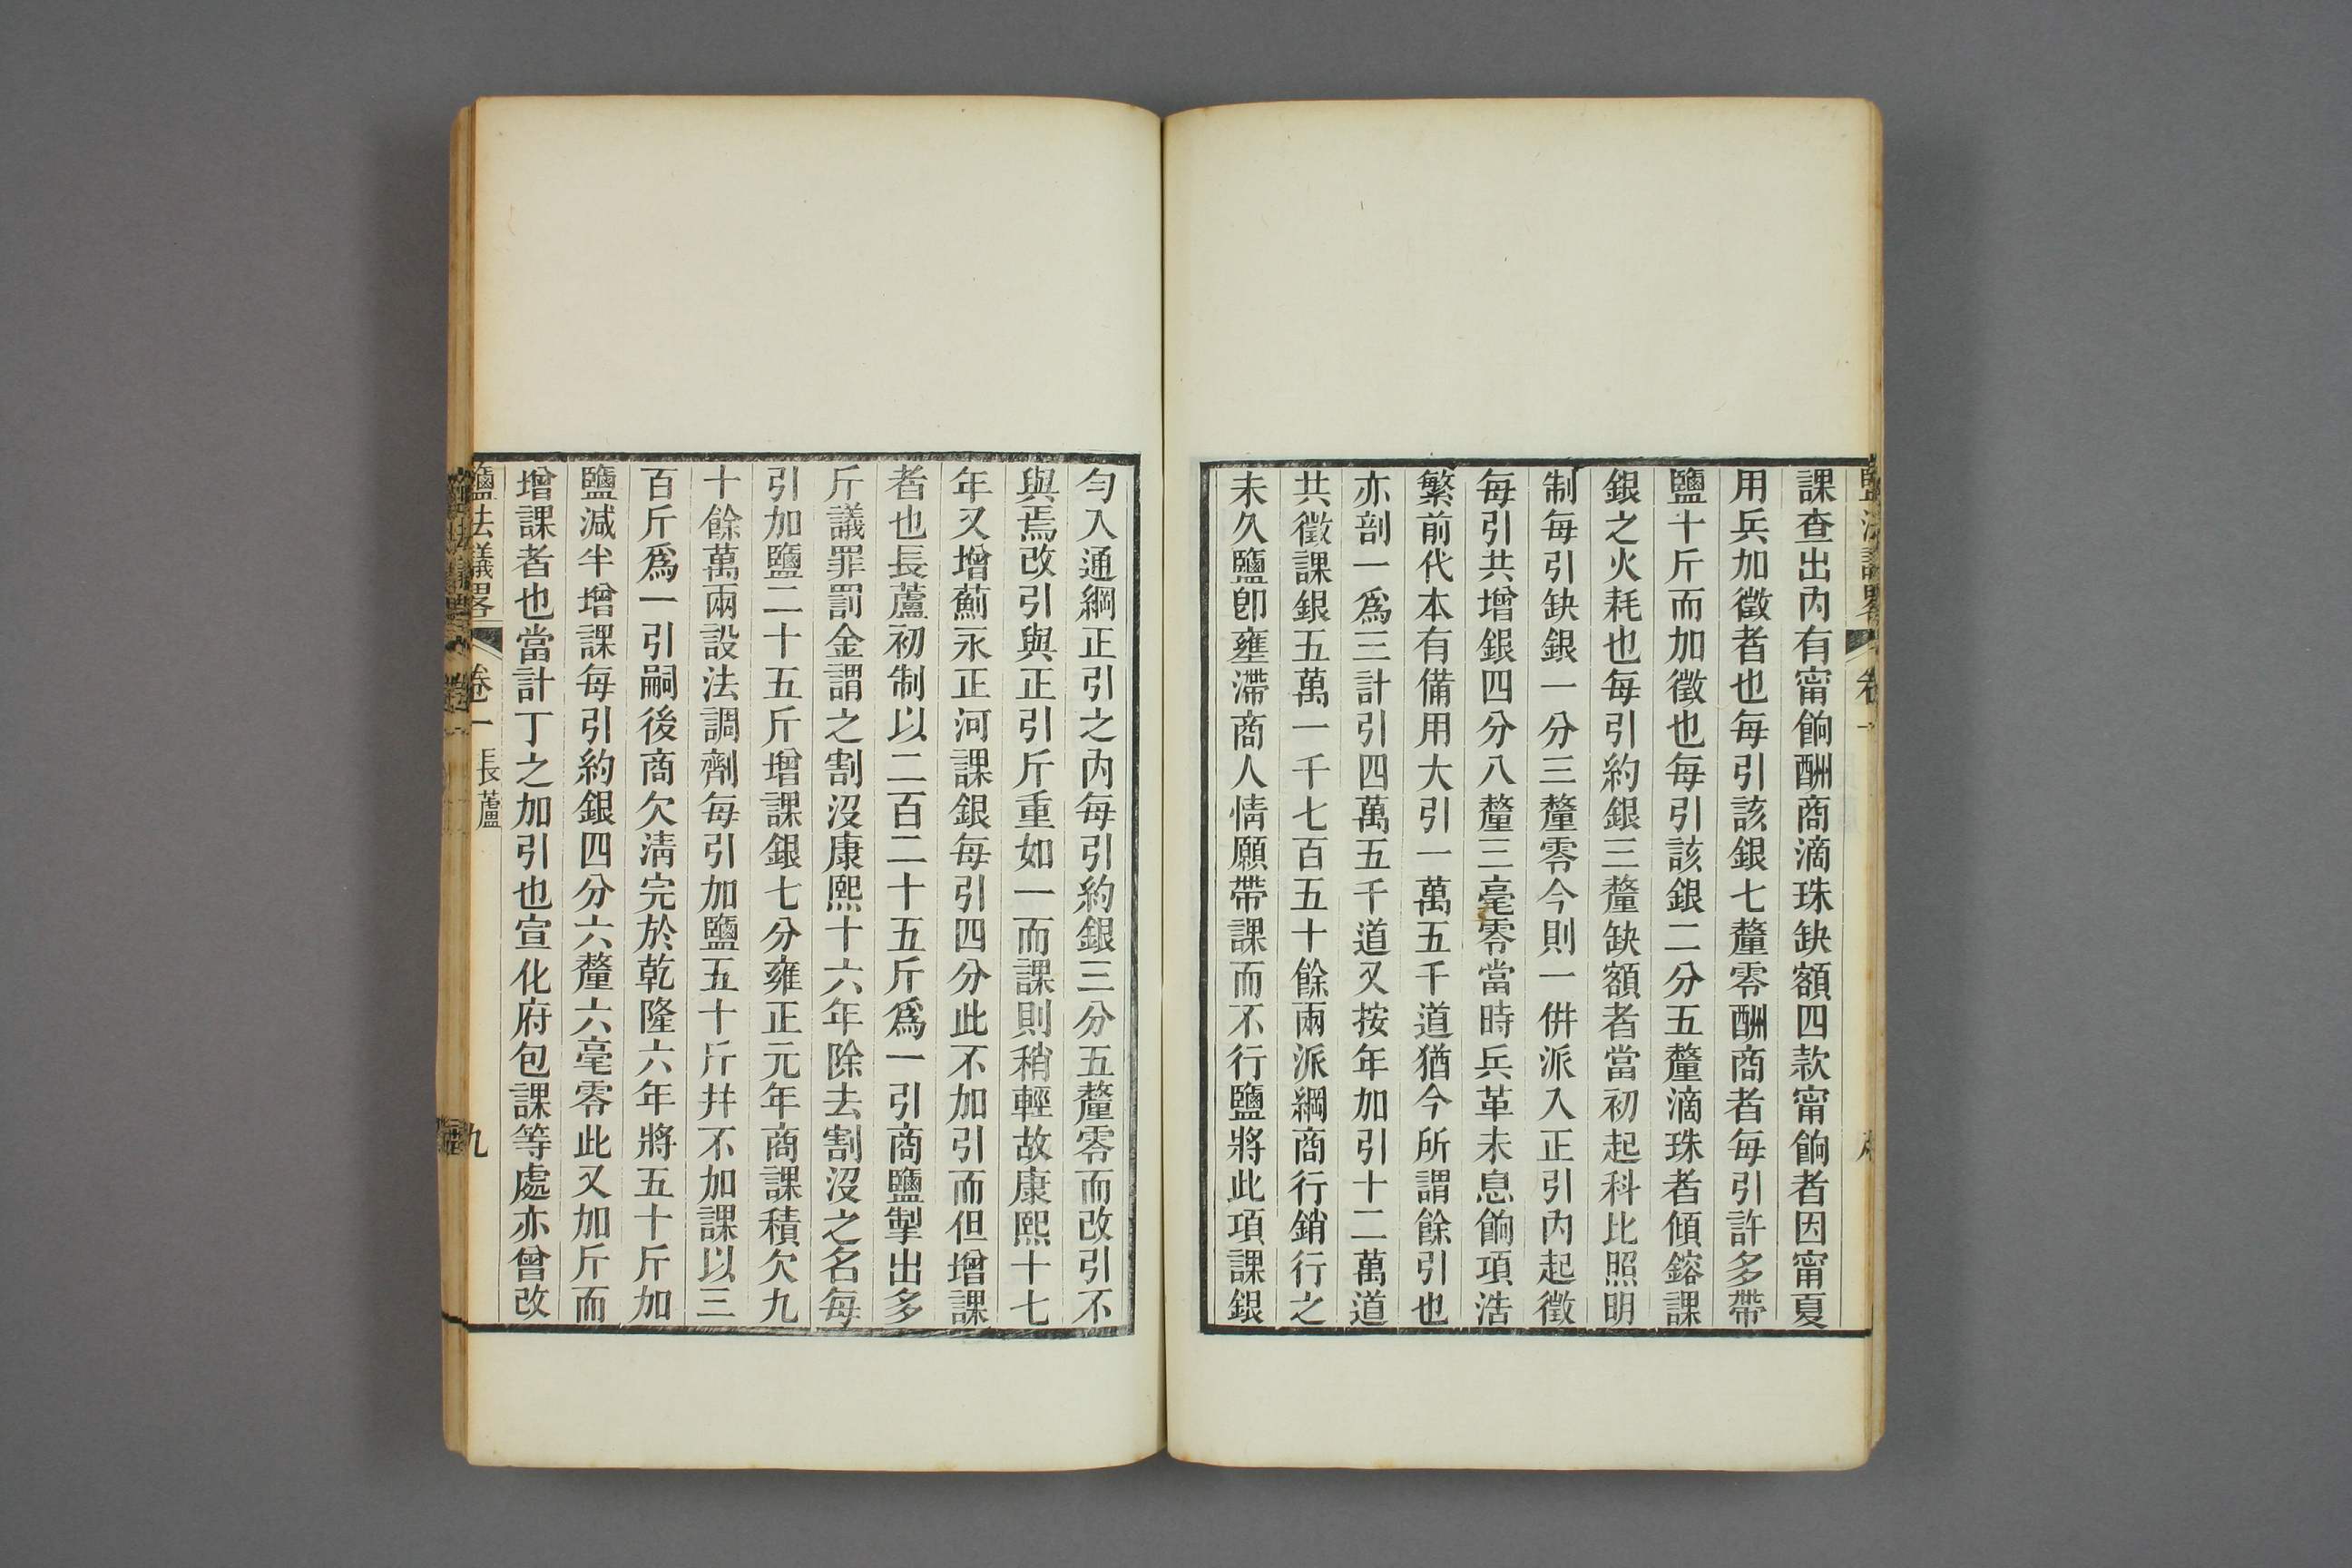 課查出內有甯餉酬商滴珠缺額四款甯餉者因甯夏
用兵加徵者也每引該銀七釐零酬商者每引許多帶
鹽十斤而加徵也每引該銀二分五釐滴珠者傾鎔課
銀之火耗也每引約銀三釐缺額者當初起科比照明
制每引缺銀一分三釐零今則一倂派入正引內起徵
每引共增銀四分八釐三毫零當時兵革未息餉項浩
繁前代本有備用大引一萬五千道猶今所謂餘引也
亦剖一爲三計引四萬五千道又按年加引十二萬道
共徵課銀五萬一千七百五十餘兩派綱商行銷行之
未久鹽卽壅滯商人情願帶課而不行鹽將此項課銀
勻入通綱正引之內每引約銀三分五釐零而改引不
與焉改引與正引斤重如一而課則稍輕故康熙十七
年又增薊永正河課銀每引四分此不加引而但增課
者也長蘆初制以二百二十五斤爲一引商鹽掣出多
斤議罪罰金謂之割沒康熙十六年除去割沒之名每
引加鹽二十五斤增課銀七分雍正元年商課積欠九
十餘萬兩設法調劑每引加鹽五十斤幷不加課以三
百斤爲一引嗣後商欠清完於乾隆六年將五十斤加
鹽減半增課每引約銀四分六釐六毫零此又加斤而
增課者也當計丁之加引也宣化府包課等處亦曾改
鹽法議畧 卷一 長蘆 九